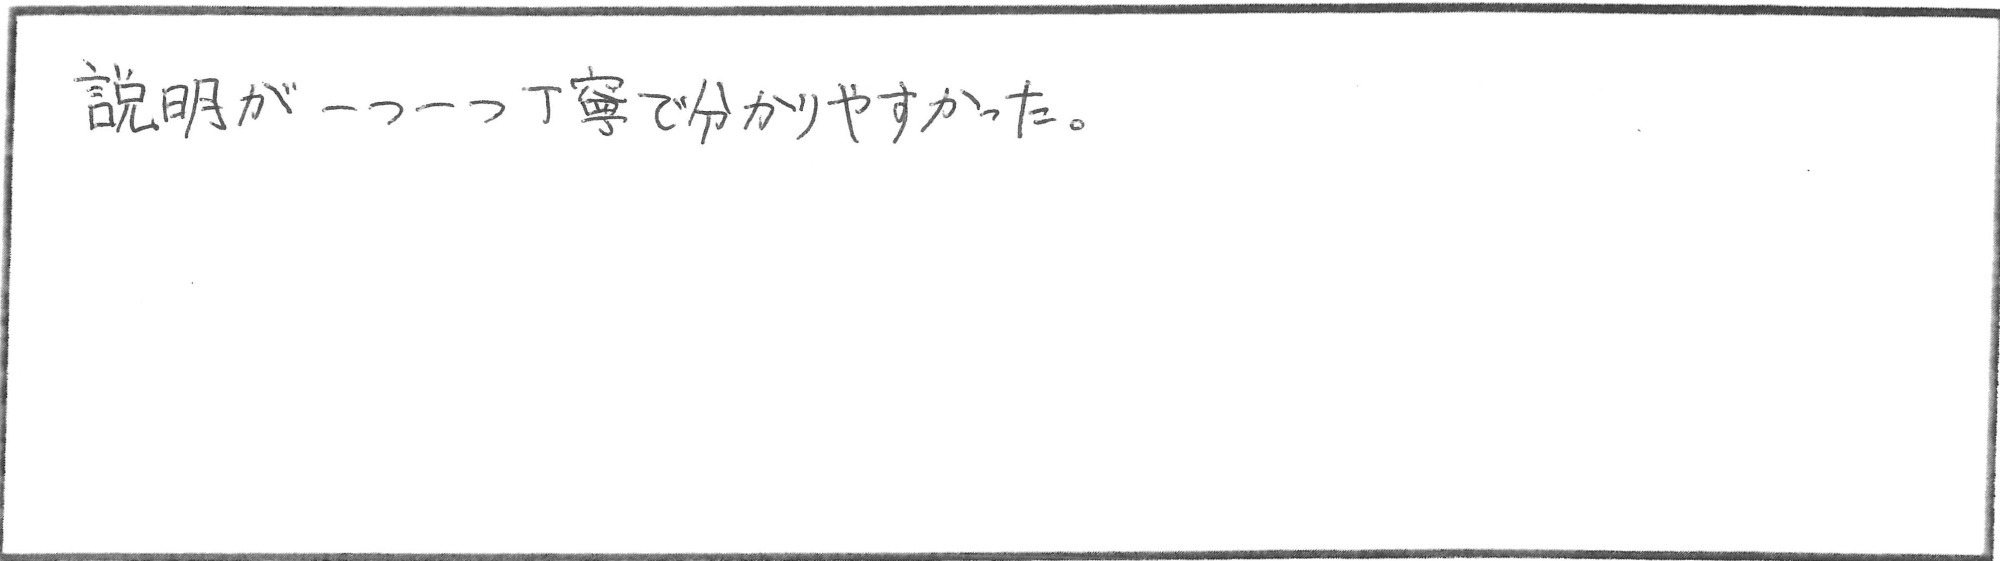 説明が一つ一つ丁寧で分かりやすかった。